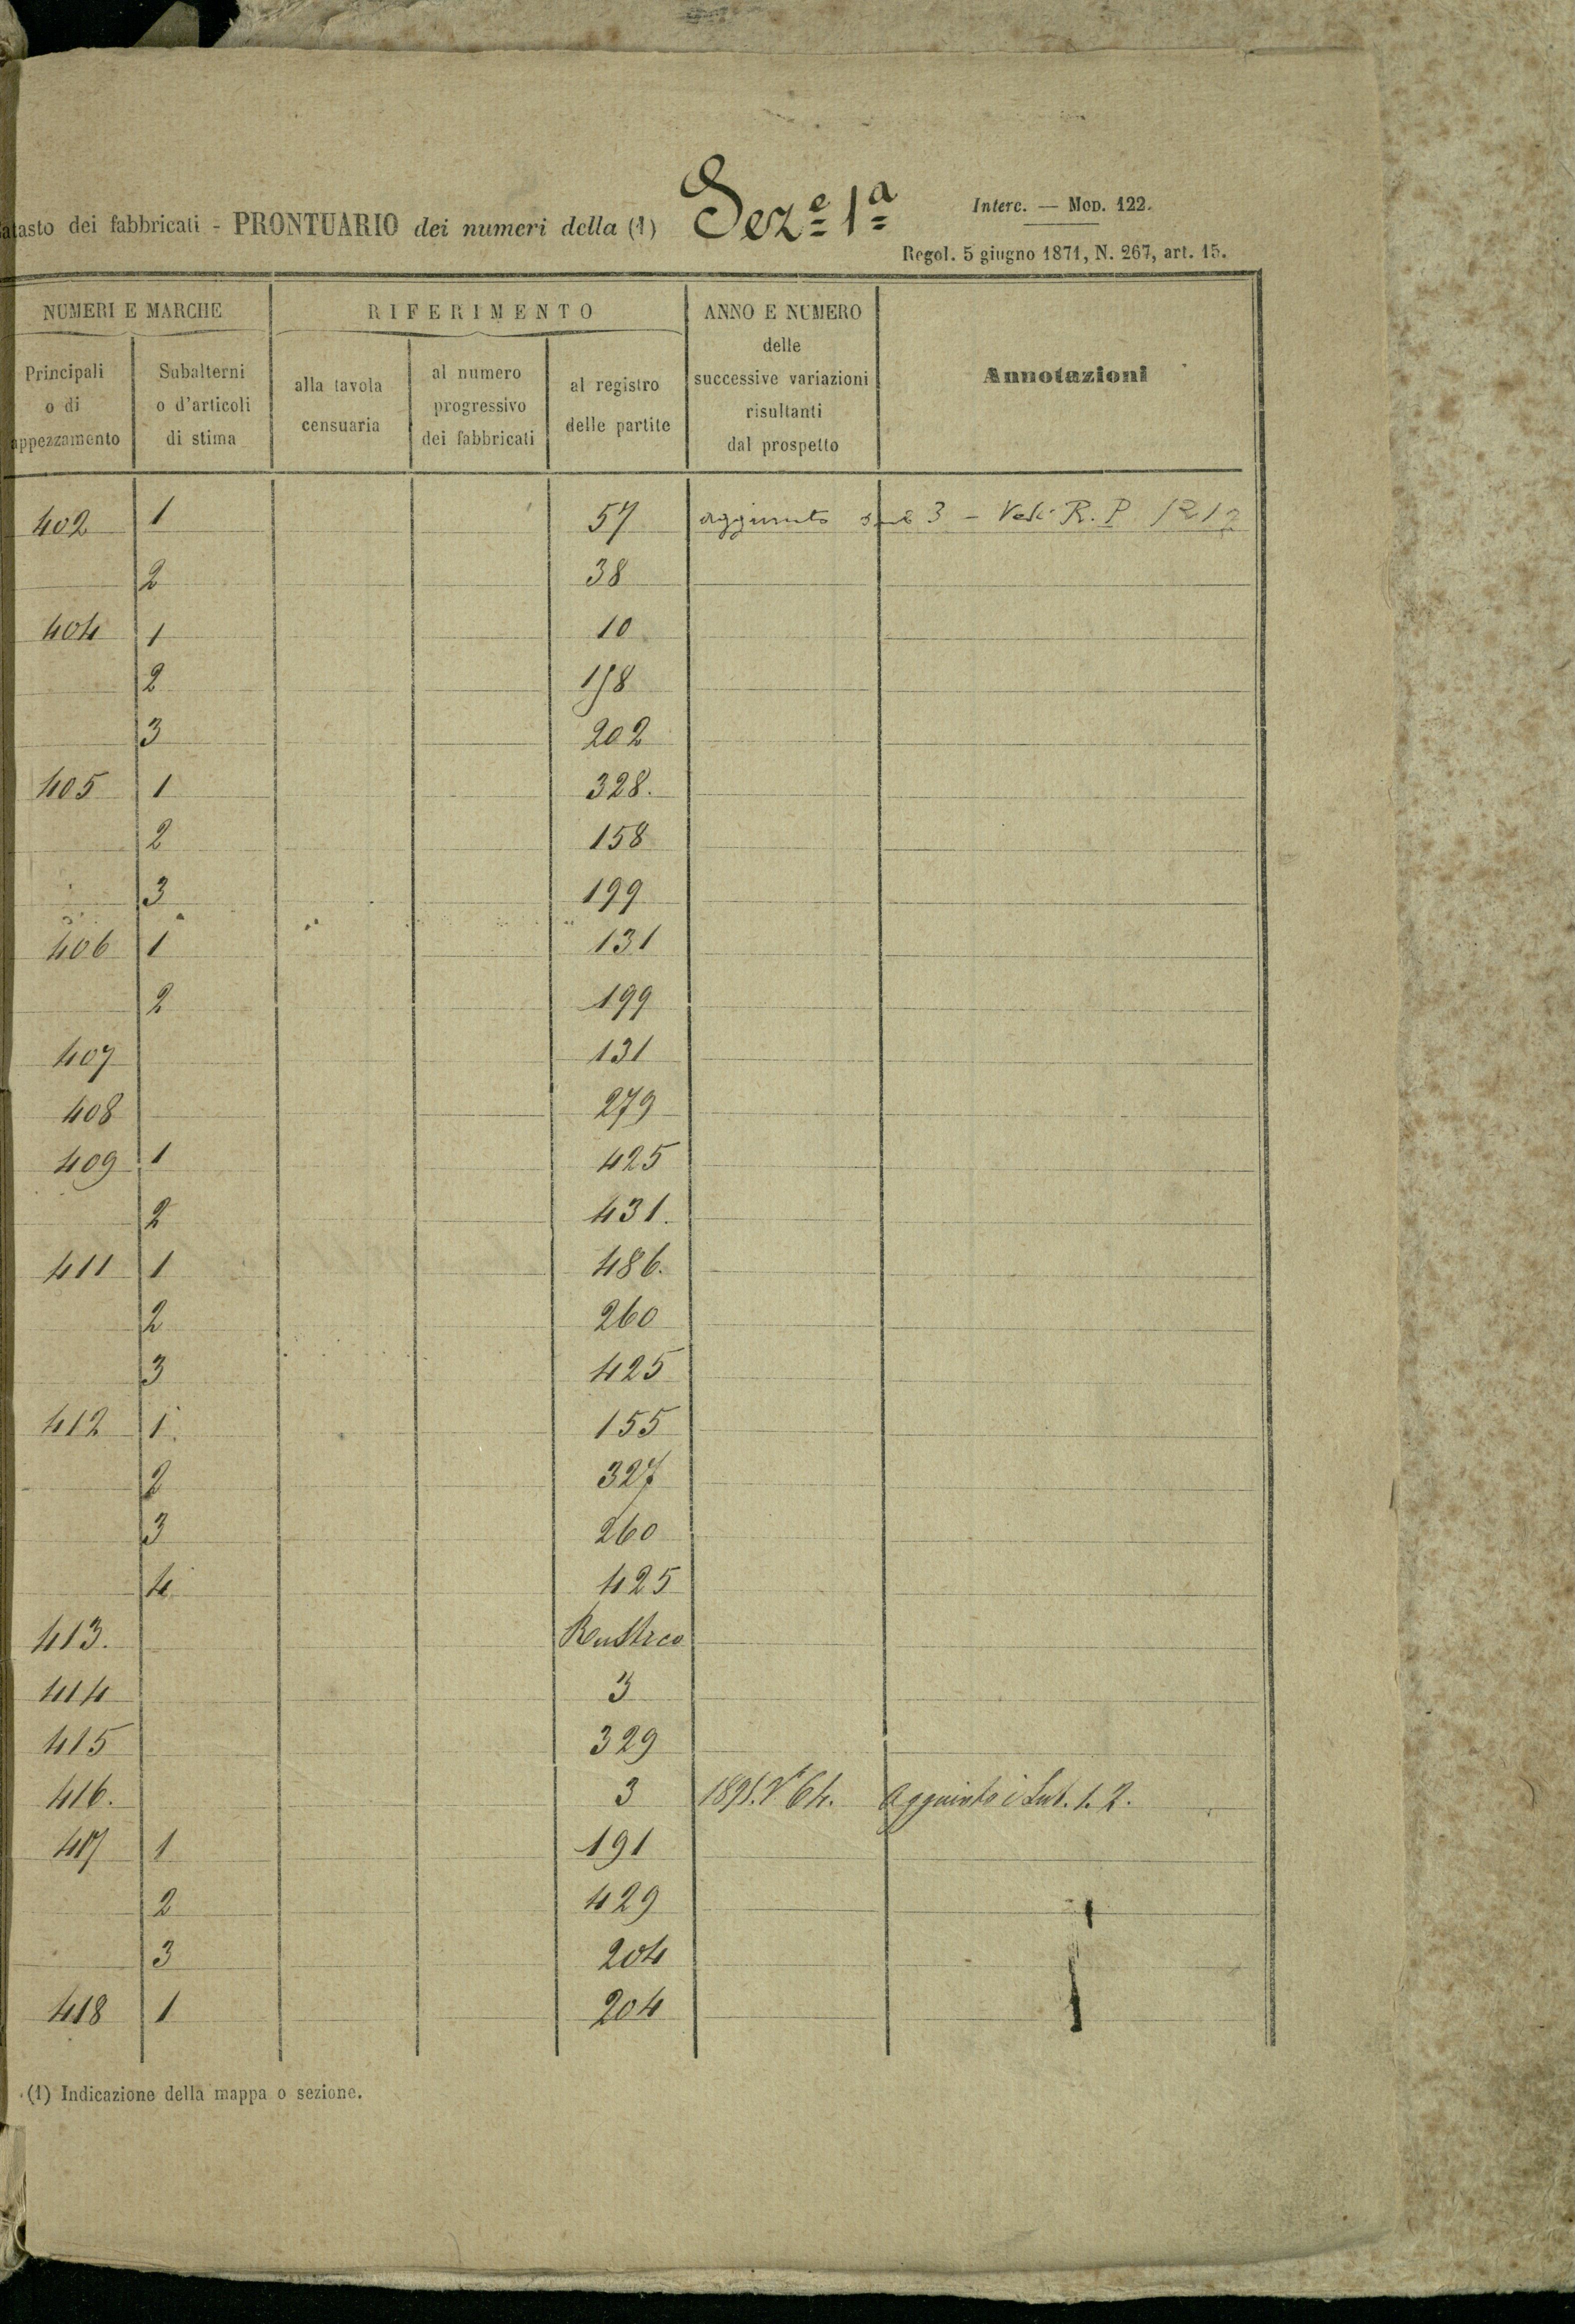 Catasto dei fabbricati - PRONTUARIO dei numeri della (1) Sez.e 1a
Interc. — Mod. 122.
Regol. 5 giugno 1871, N. 267, art. 15.
NUMERI E MARCHE
RIFERIMENTO
ANNO E NUMERO
delle
successive variazioni
risultanti
dal prospetto
Annotazioni
Principali
o di
appezzamento
Subalterni
o d'articoli
di stima
alla tavola
censuaria
al numero
progressivo
dei fabbricati
al registro
delle partite
402 1 57 aggiunto sub 3 - Vedi R. P. 1212
2 38
404 1 10
2 158
3 202
405 1 328.
2 158
3 199
406 1 131
2 199
407 131
408 279
409 1 425
2 431.
411 1 486.
2 260
3 425
412 1 155
2 327
3 260
4 425
413. Rustico
414 3
415 329
416. 3 64. Aggiunto i Sub. 1. 2.
417 1 191
2 429
3 204
418 1 204
(1) Indicazione della mappa o sezione.